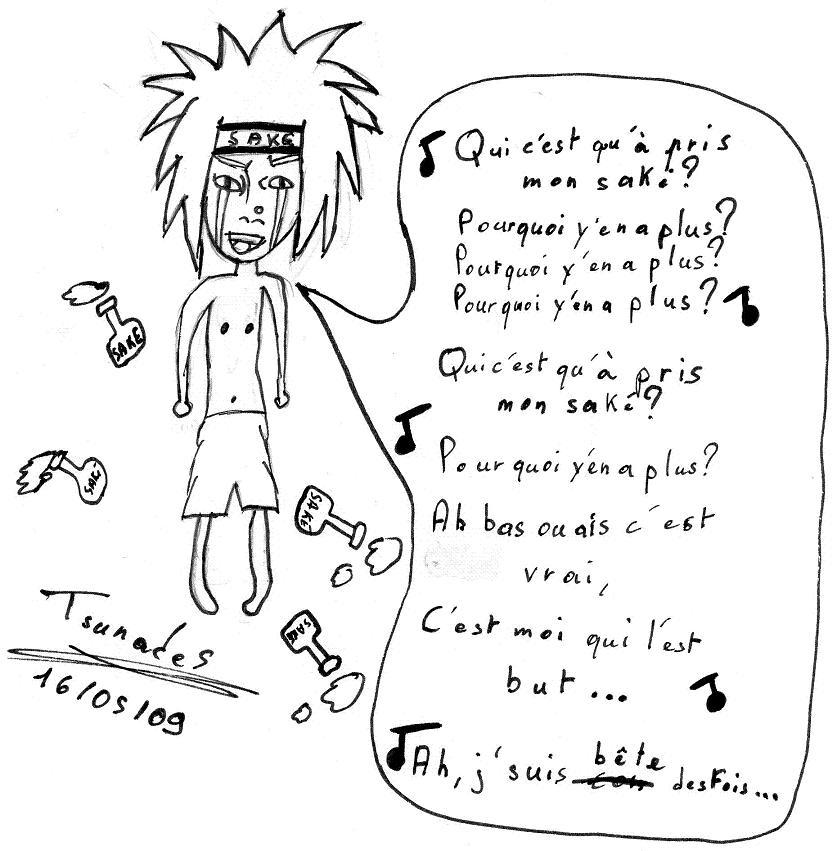 SAKE
Qui c'est qu'à pris
mon saké?
Pourquoi y'en a plus?
Pourquoi y'en a plus?
Pourquoi y'en a plus?
Qui c'est qu'à pris
mon saké?
Pourquoi y'en a plus?
Ah bas ouais c'est
vrai,
C'est moi qui l'est
but...
Ah, j'suis bête desfois...
SAKE
SAKÉ
SAKÉ
SAKE
Tsunades
16/05/09